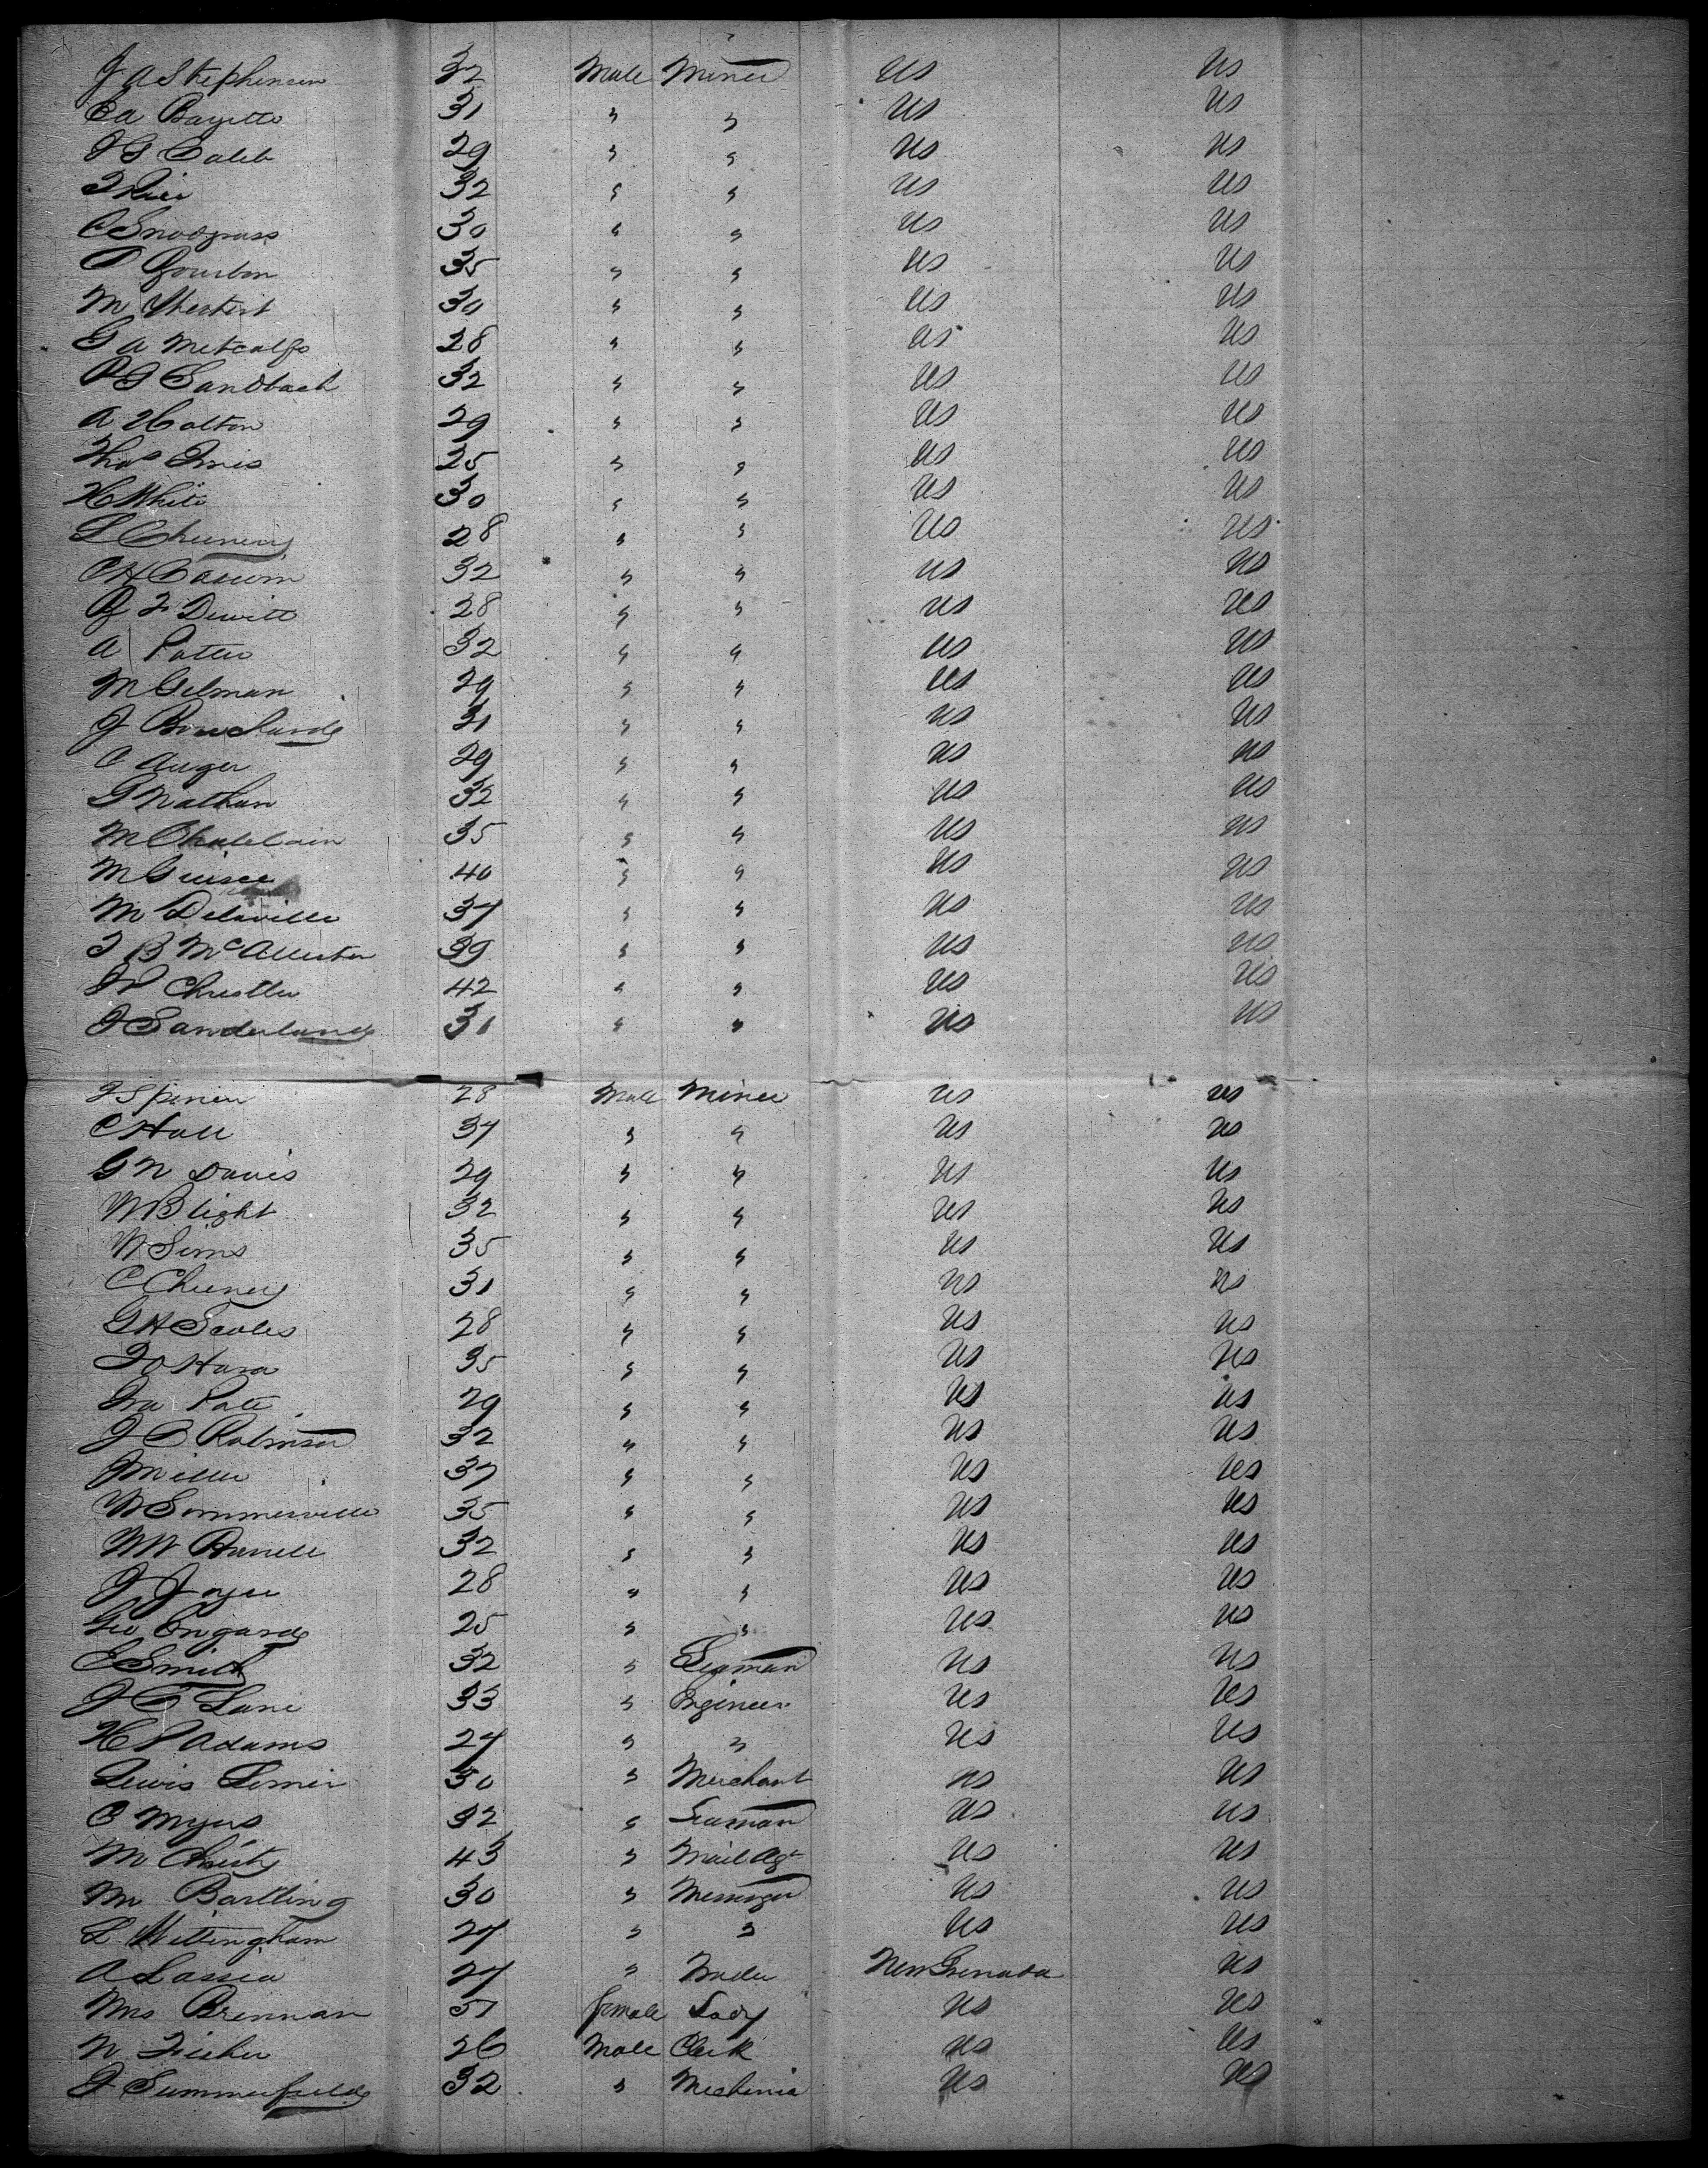 J A Stephenson 32 Male Miner US US
E A Bayetto 31 " " US US
J G Caleb 29 " " US US
T Rice 32 " " US US
C Snodgrass 30 " " US US
P Bourbon 35 " " US US
M Herbert 30 " " US US
G A Metcalfe 28 " " US US
P G Sandbach 32 " " US US
A Holton 29 " " US US
Thos Innis 25 " " US US
H White 30 " " US US
L Cheeney 28 " " US US
C H 32 " " US US
B F Dewitt 28 " " US US
A Potter 32 " " US US
M Gilman 29 " " US US
J 31 " " US US
C Auger 29 " " US US
G Nathan 32 " " US US
M Chatelain 35 " " US US
M 40 " " US US
M Delaville 37 " " US US
T B McAllister 39 " " US US
J P Christler 42 " " US US
J Sanderland 31 " " US US
J Spenier 28 Male Miner US US
C Hall 37 " " US US
G N Davis 29 " " US US
W Blight 32 " " US US
W Sims 35 " " US US
C Cheeney 31 " " US US
G H Scoles 28 " " US US
T O Hara 35 " " US US
Ira Pate 29 " " US US
J C Robinson 32 " " US US
J Miller 37 " " US US
W Sommerville 35 " " US US
W W 32 " " US US
J Joyce 28 " " US US
Geo Engard 25 " " US US
E Smith 32 " Seaman US US
J C Lane 33 " Engineer US US
H P Adams 27 " " US US
Lewis Lemen 30 " Merchant US US
C Myers 32 " Seaman US US
M Christy 43 " Mail Agt US US
M Bartling 30 " Messenger US US
L Wittingham 27 " " US US
A Lassea 27 " Trader New Grenada US
Mrs Brennan 51 female Lady US US
N Fisher 26 Male Clerk US US
J Summerfield 32 " Mechenic US US